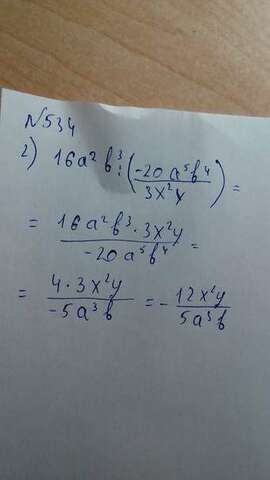 №534
2) 16a²b³ : (-20a⁵b⁴ / 3x²y) =
= 16a²b³ · 3x²y / -20a⁵b⁴ =
= 4 · 3x²y / -5a³b = - 12x²y / 5a³b